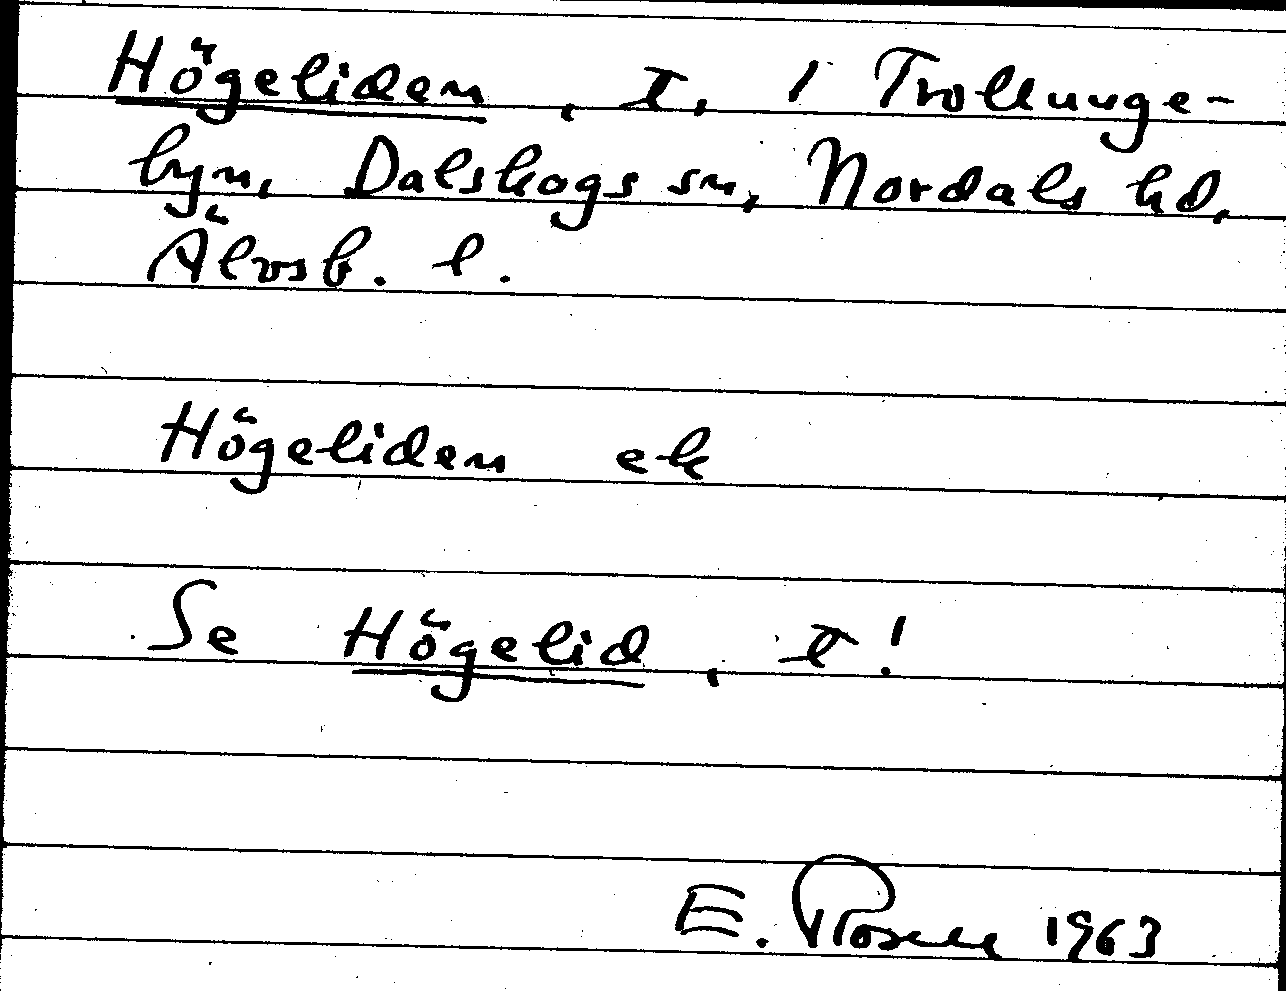 Högeliden, t, / Trollunge-
byn, Dalskogs sn, Nordals hd,
Älvsb. l.
Högeliden ek
Se Högelid, t!
E. Rosell 1963